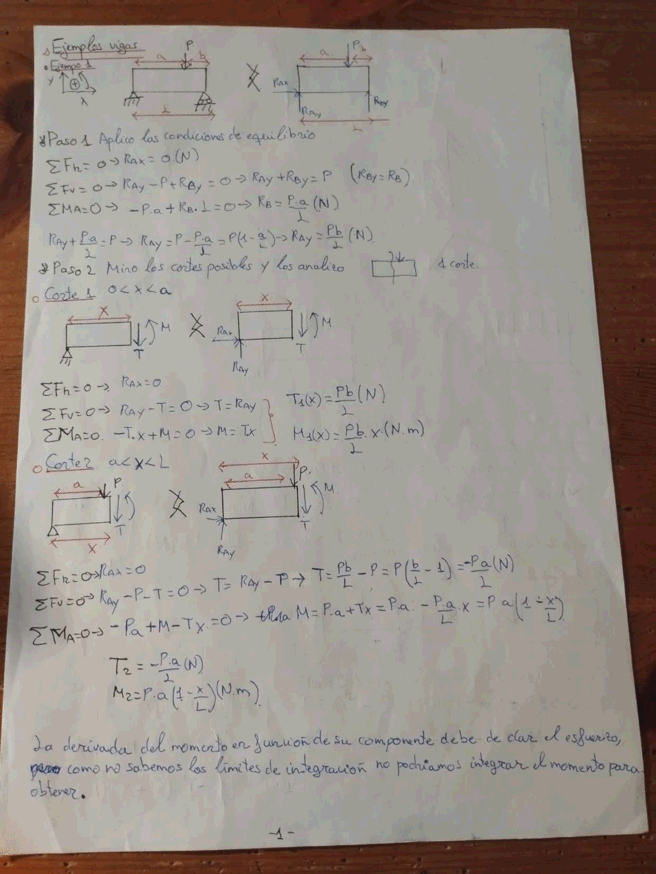 Ejemplos vigas
Ejemplo 1
P
a b
y
x
L
a P b
RAx
RAy RBy
L
Paso 1 Aplico las condiciones de equilibrio
ΣFh=0→RAx=0(N)
ΣFv=0→RAy-P+RBy=0→RAy+RBy=P (RBy=RB)
ΣMA=0→ -P.a+RB.L=0→RB=P.a/L (N)
RAy+Pa/L=P→RAy=P-P.a/L=P(1-a/L)→RAy=Pb/L (N)
Paso 2 Miro los cortes posibles y los analizo 1 corte
Corte 1 0<x<a
x M T
x RAx M T
RAy
ΣFh=0→RAx=0
ΣFv=0→RAy-T=0→T=RAy T1(x)=Pb/L (N)
ΣMA=0. -T.x+M=0→M=Tx M1(x)=Pb/L.x.(N.m)
Corte 2 a<x<L
a P T
x
x
a P. M
RAx T
RAy
ΣFh=0→RAx=0
ΣFv=0→RAy-P-T=0→T=RAy-P→T=Pb/L-P=P(b/L-1)=-P.a/L (N)
ΣMA=0→-P.a+M-Tx=0→ M=P.a+Tx=P.a-P.a/L.x=P.a(1-x/L)
T2=-P.a/L (N)
M2=P.a(1-x/L)(N.m)
La derivada del momento en función de su componente debe de dar el esfuerzo,
como no sabemos los límites de integración no podríamos integrar el momento para
obtener.
-1-